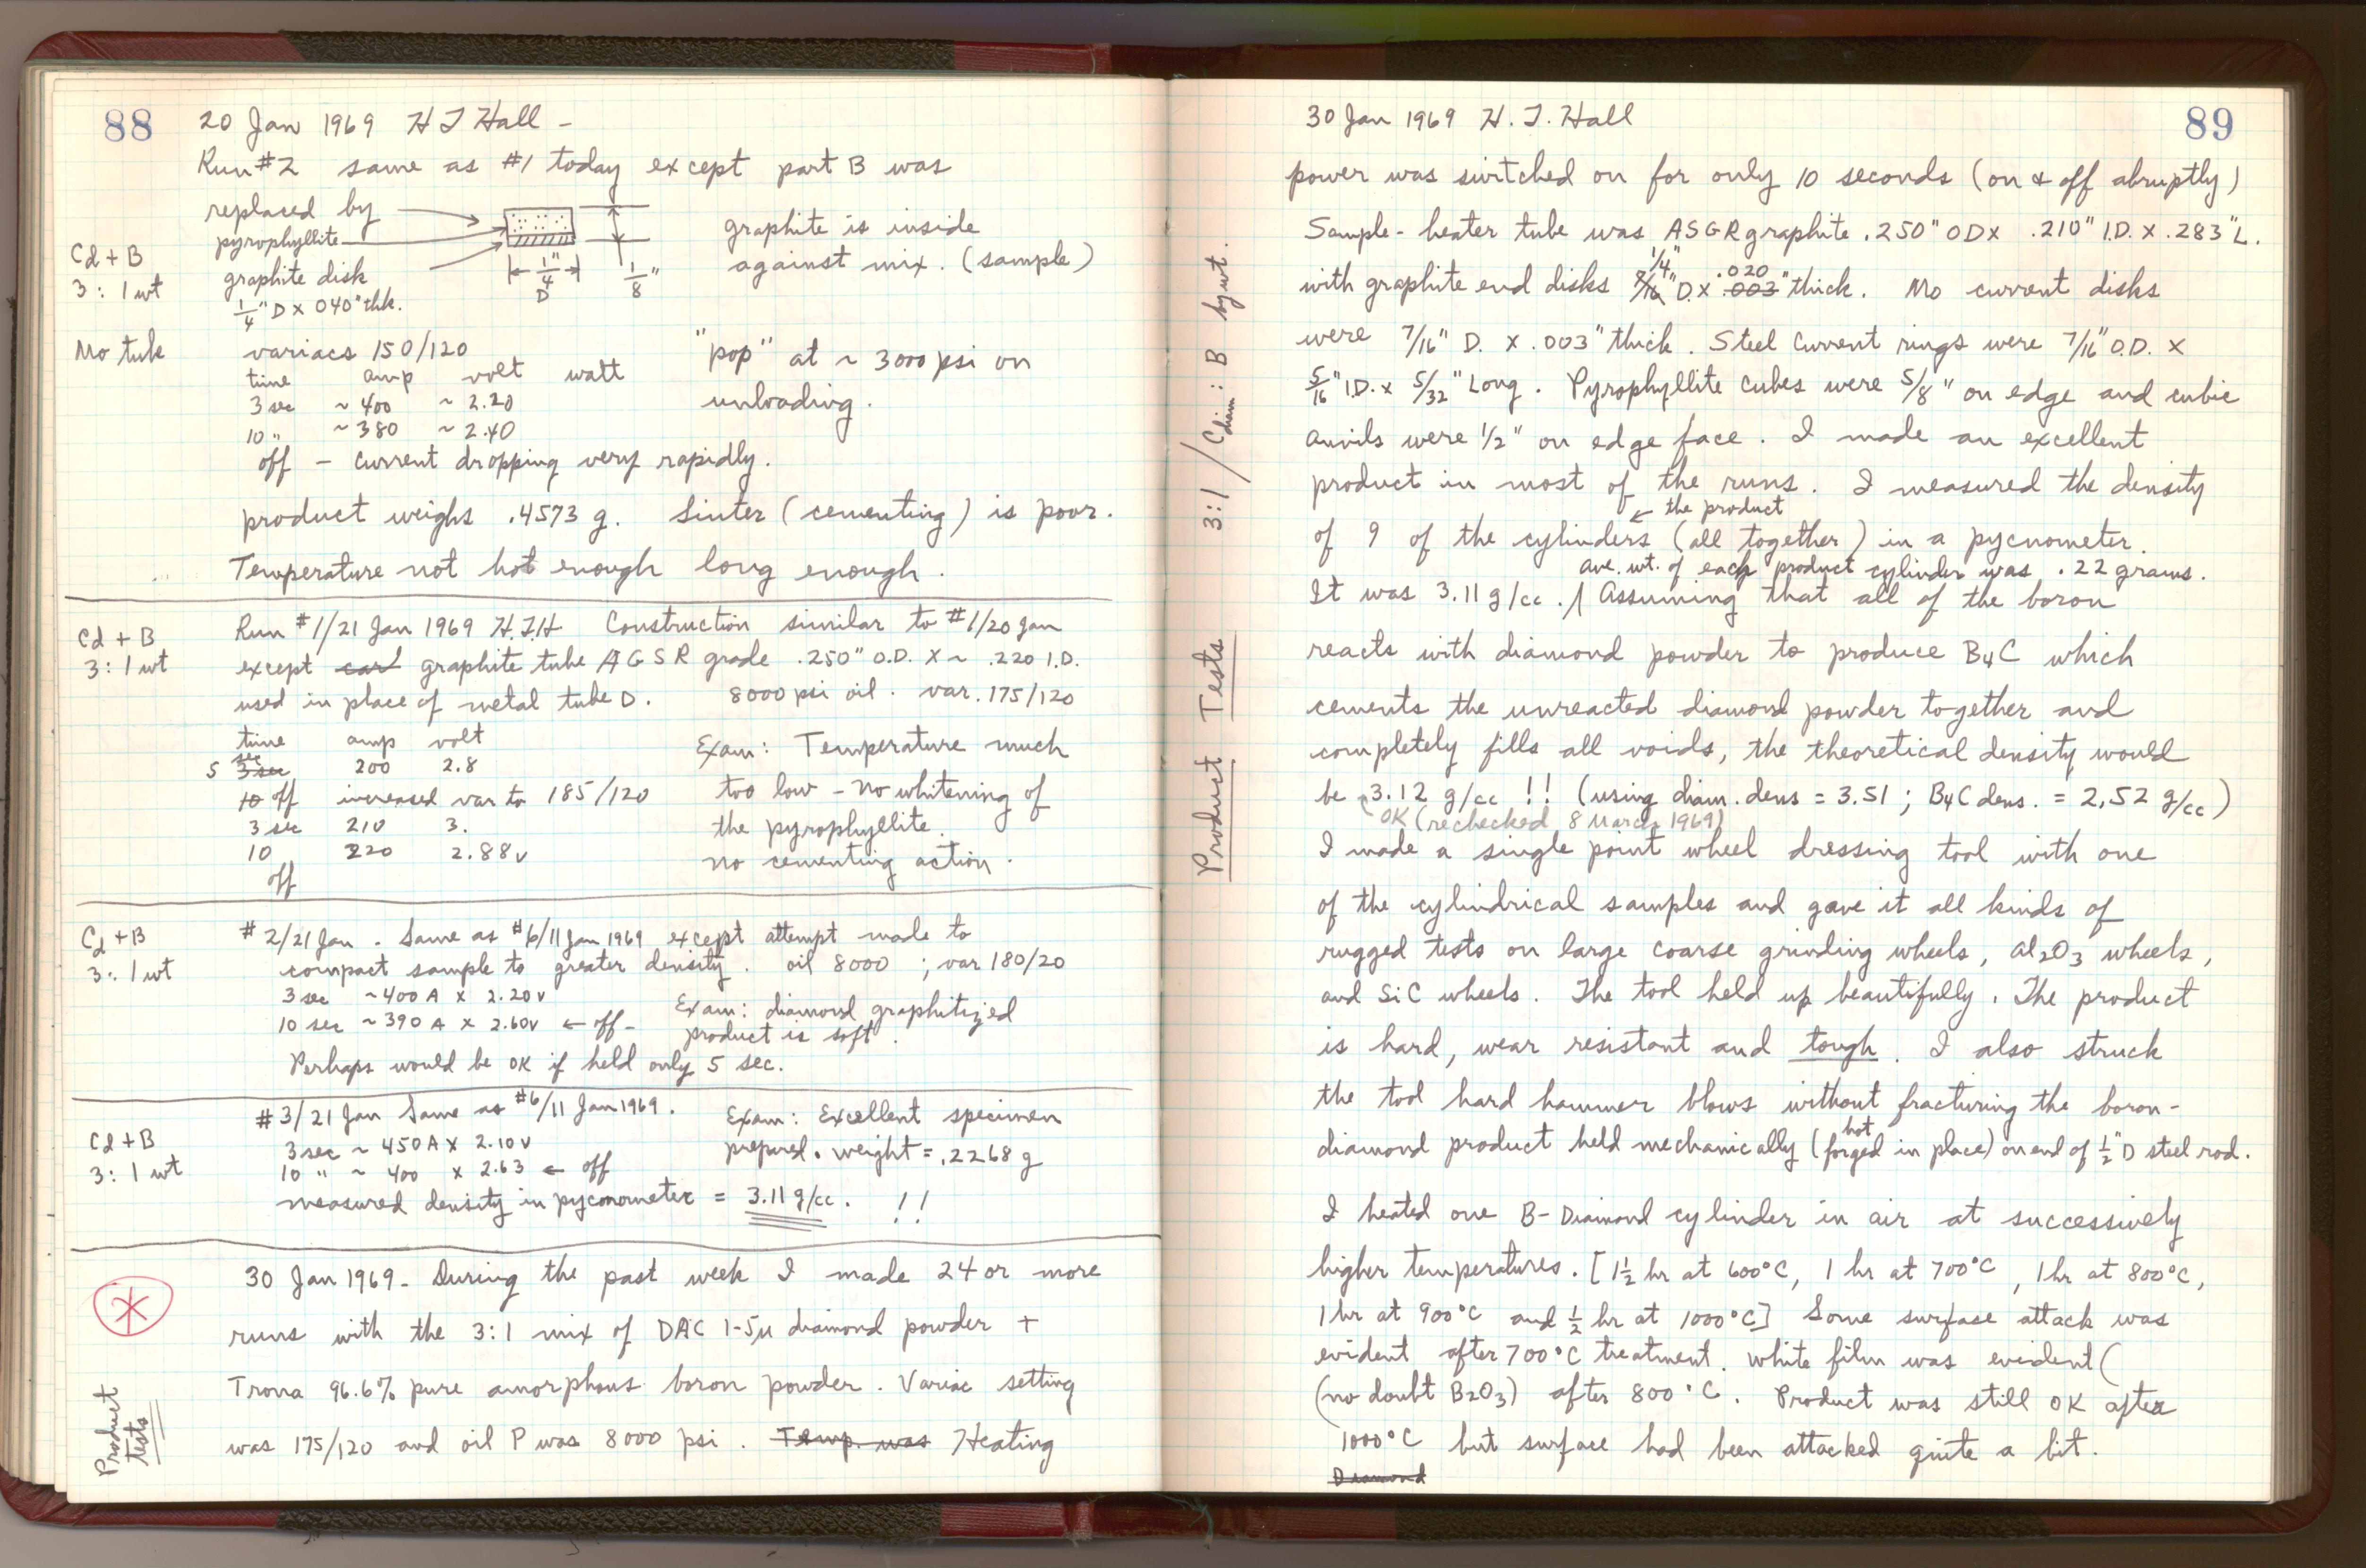 88
20 Jan 1969 H T Hall -
Run #2 same as #1 today except part B was
replaced by
pyrophyllite
graphite disk
1/4" D x 040" thk.
1/4" D
1/8"
graphite is inside
against mix. (sample)
Cd + B
3: 1 wt
Mo tube
variacs 150/120
time amp volt watt
3 sec ~ 400 ~ 2.20
10 " ~ 380 ~ 2.40
off - current dropping very rapidly.
"pop" at ~ 3000 psi on
unloading.
product weighs .4573 g. Sinter (cementing) is poor.
Temperature not hot enough long enough.
Cd + B
3: 1 wt
Run #1/21 Jan 1969 H.T.H Construction similar to #1/20 Jan
except graphite tube AGSR grade .250" O.D. X ~ .220 I.D.
used in place of metal tube D. 8000 psi oil. var. 175/120
time amp volt
sec
5 3 sec 200 2.8
10 off increased var to 185/120
3 sec 210 3.
10 220 2.88v
off
Exam: Temperature much
too low - no whitening of
the pyrophyllite.
no cementing action.
Cd + B
3: 1 wt
#2/21 Jan. Same as #6/11 Jan 1969 except attempt made to
compact sample to greater density. oil 8000 ; var 180/20
3 sec ~400 A x 2.20v
10 sec ~390 A x 2.60v ← off -
Exam: diamond graphitized
product is soft.
Perhaps would be OK if held only 5 sec.
Cd + B
3: 1 wt
#3/21 Jan Same as #6/11 Jan 1969.
3 sec ~ 450 A x 2.10v
10 " ~ 400 x 2.63 ← off
Exam: Excellent specimen
prepared. weight = .2268 g
measured density in pyconometer = 3.11 g/cc. !!
*
Product
tests
30 Jan 1969 - During the past week I made 24 or more
runs with the 3:1 mix of DAC 1-5µ diamond powder +
Trona 96.6% pure amorphous boron powder. Variac setting
was 175/120 and oil P was 8000 psi. Temp. was Heating
Product Tests 3:1 / Cdiam: B by wt.
30 Jan 1969 H. T. Hall
89
power was switched on for only 10 seconds (on & off abruptly)
Sample - heater tube was ASGR graphite .250" OD x .210" I.D. x .283" L.
1/4" .020
with graphite end disks 7/16" D. x .003" thick. Mo current disks
were 7/16" D. x .003" thick. Steel current rings were 7/16" O.D. x
5/16" I.D. x 5/32" Long. Pyrophyllite cubes were 5/8" on edge and cubic
anvils were 1/2" on edge face. I made an excellent
product in most of the runs. I measured the density
← the product
of 9 of the cylinders (all together) in a pycnometer.
ave. wt. of each product cylinder was .22 grams.
It was 3.11 g/cc. / Assuming that all of the boron
reacts with diamond powder to produce B4C which
cements the unreacted diamond powder together and
completely fills all voids, the theoretical density would
be 3.12 g/cc !! (using diam. dens = 3.51 ; B4C dens. = 2.52 g/cc)
OK (rechecked 8 March 1969)
I made a single point wheel dressing tool with one
of the cylindrical samples and gave it all kinds of
rugged tests on large coarse grinding wheels, Al2O3 wheels,
and SiC wheels. The tool held up beautifully. The product
is hard, wear resistant and tough. I also struck
the tool hard hammer blows without fracturing the boron-
hot
diamond product held mechanically (forged in place) on end of 1/2" D steel rod.
I heated one B-Diamond cylinder in air at successively
higher temperatures. [1 1/2 hr at 600°C, 1 hr at 700°C, 1 hr at 800°C,
1 hr at 900°C and 1/2 hr at 1000°C] Some surface attack was
evident after 700°C treatment. White film was evident (
(no doubt B2O3) after 800°C. Product was still OK after
1000°C but surface had been attacked quite a bit.
Diamond